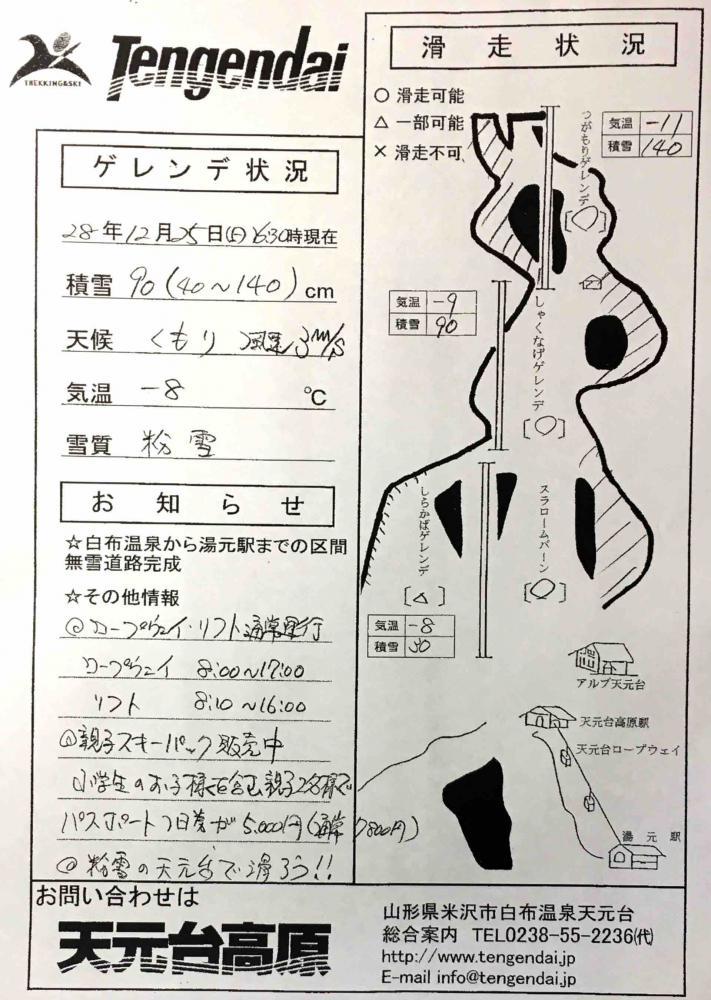 TREKKING&SKI
Tengendai
ゲレンデ状況
28年12月25日(日)6:30時現在
積雪 90(40〜140)cm
天候 くもり 風速 3m/s
気温 -8 ℃
雪質 粉雪
お知らせ
☆白布温泉から湯元駅までの区間
無雪道路完成
☆その他情報
◎ロープウェイ・リフト通常運行
ロープウェイ 8:00〜17:00
リフト 8:10〜16:00
◎親子スキーパック販売中
小学生のお子様を含む親子2名様で
パスポート1日券が5,000円(通常7,800円)
◎粉雪の天元台で滑ろう!!
滑走状況
○ 滑走可能
△ 一部可能
× 滑走不可
つがもりゲレンデ
[○]
気温 -11
積雪 140
気温 -9
積雪 90
しゃくなげゲレンデ
[○]
しらかばゲレンデ
[△]
スラロームバーン
[○]
気温 -8
積雪
アルブ天元台
天元台高原駅
天元台ロープウェイ
湯元駅
お問い合わせは
天元台高原
山形県米沢市白布温泉天元台
総合案内 TEL0238-55-2236㈹
http://www.tengendai.jp
E-mail info@tengendai.jp